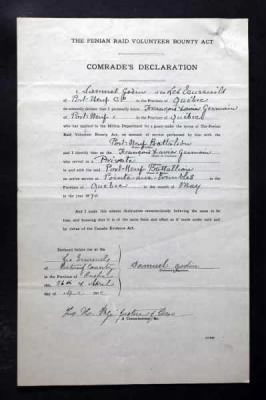 THE FENIAN RAID VOLUNTEER BOUNTY ACT
COMRADE'S DECLARATION
I, Samuel Godin of Les Ecureuils
of Port-Neuf Co in the Province of Quebec
do solemnly declare that I personally know François Xavier Germain
of Port-Neuf in the Province of Quebec
who has applied to the Militia Department for a grant under the terms of The Fenian
Raid Volunteer Bounty Act, on account of service performed by him with the
Port-Neuf Battalion
and I identify him as the François Xavier Germain
who served as a Private
in and with the said Port-Neuf Battalion
on active service at Pointe aux
Quebec in the month of May
in the year 1870
And I make this solemn declaration conscientiously, believing the same to be
true, and knowing that it is of the same force and effect as if made under oath and by
virtue of the Canada Evidence Act.
Declared before me at the
Les Ecureuils
of County
in the Province of Quebec
this 26th of April
Samuel Godin
A Commissioner, &c.